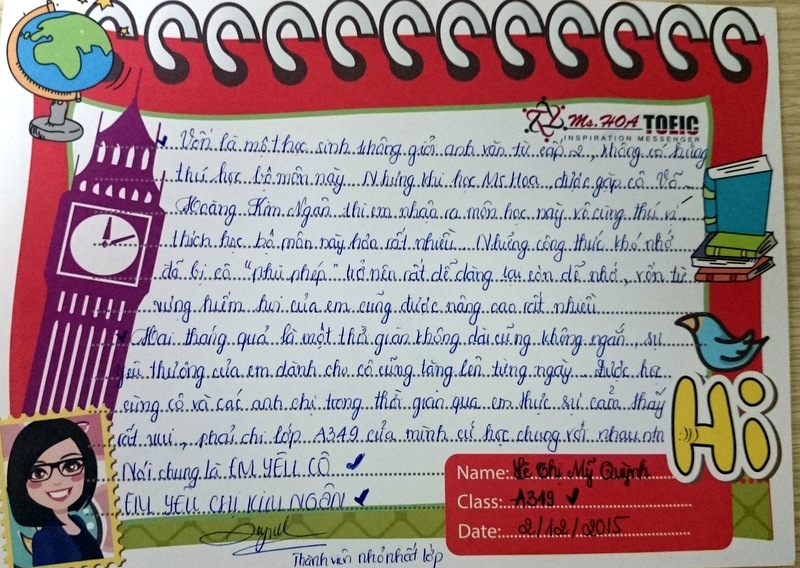 Ms. HOA TOEIC
INSPIRATION MESSENGER
Vốn là một học sinh không giỏi anh văn từ cấp 2, không có hứng
thú học bộ môn này. Nhưng khi học Ms Hoa, được gặp cô Võ
Hoàng Kim Ngân thì em nhận ra môn học này vô cùng thú vị
thích học bộ môn này hơn rất nhiều. Những công thức khó nhớ
đã bị cô "phù phép" trở nên rất dễ dàng lại còn dễ nhớ, vốn từ
vựng hiếm hoi của em cũng được nâng cao rất nhiều
Hai tháng quả là một thời gian không dài cũng không ngắn, sự
yêu thương của em dành cho cô cũng tăng lên từng ngày. Được học
cùng cô và các anh chị trong thời gian qua em thực sự cảm thấy
rất vui, phải chi lớp A349 của mình cứ học chung với nhau
Nói chung là EM YÊU CÔ
EM YÊU CHỊ KIM NGÂN
Thành viên nhỏ nhất lớp
Hi
Name: Lê Thị Mỹ Quỳnh
Class: A349
Date: 2/12/2015